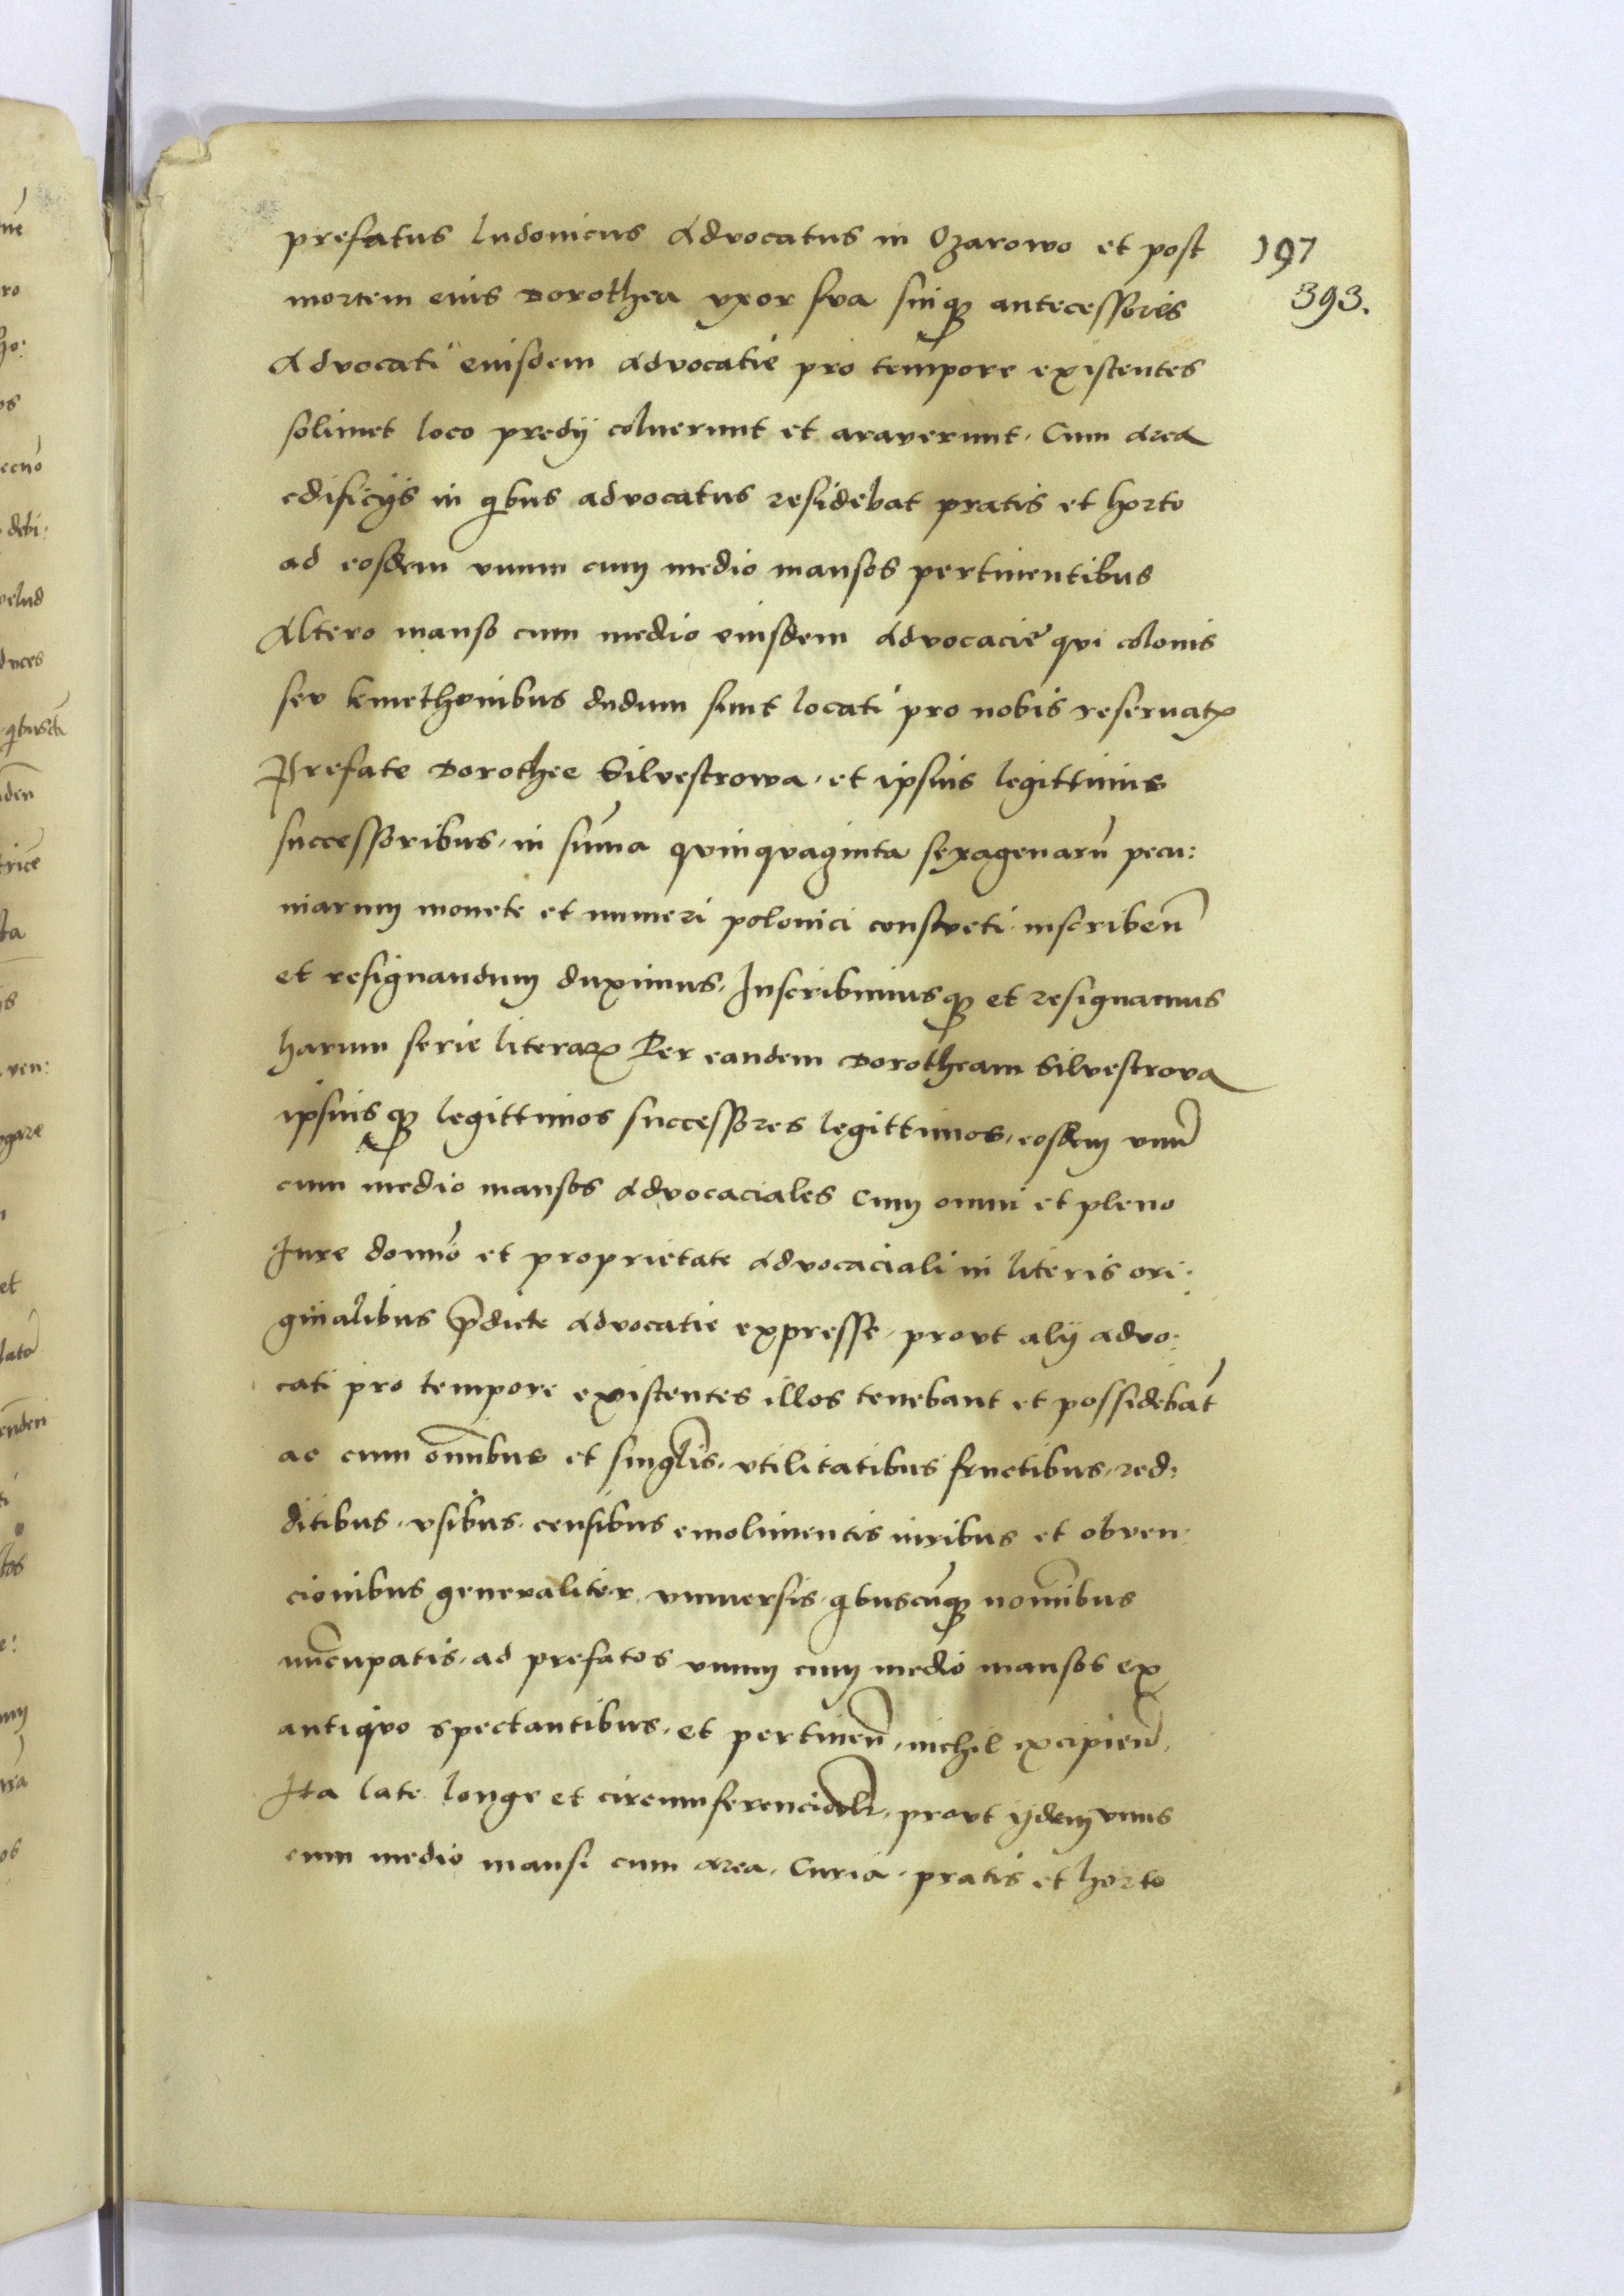 prefatus ludovicus Advocatus in Ozarowo et post
197
393.
mortem eius Dorothea vxor sua suiq; antecessores
Advocati eiusdem Advocatie pro tempore existentes
solimet loco predij coluerunt et araverunt. Cum area
edificijs in qbus advocatus residebat pratis et horto
ad eosdem vnum cum medio mansos pertinentibus
Altero manso cum medio eiusdem Advocacie qui colonis
seu kmethonibus dudum sunt locati pro nobis reseruatꝭ
Prefate Dorothee Silvestrowa, et ipsius legittimis
successoribus, in suma quinquaginta sexagenarū pecu:
niarum monete et numeri polonici consveti inscribenn̄
et resignandum duximus, Inscribimusq; et resignamus
harum serie literaꝝ Per eandem Dorotheam Silvestrova
ipsiusq; legittimos successores legittimos, eosdem vnū
cum medio mansos Advocaciales Cum omni et pleno
Iure domīo et proprietate Advocaciali in literis ori:
ginalibus p̄dicte Advocatie expresse, provt alij advo:
cati pro tempore existentes illos tenebant et possidebāt
ac cum om̄ibus et singlīs, vtilitatibus fructibus, red:
ditibus, vsibus, censibus emolimentis iuribus et obven:
cionibus generaliter vniuersis, qbuscūq; nom̄inbus
nūcupatis, ad prefatos vnum cum medio mansos ex
antiquo spectantibus, et pertinen̄, nichil excipien̄,
Ita late longe et circumferencialr̄, provt ijdem vnus
cum medio mansi cum area, Curia, pratis et horto